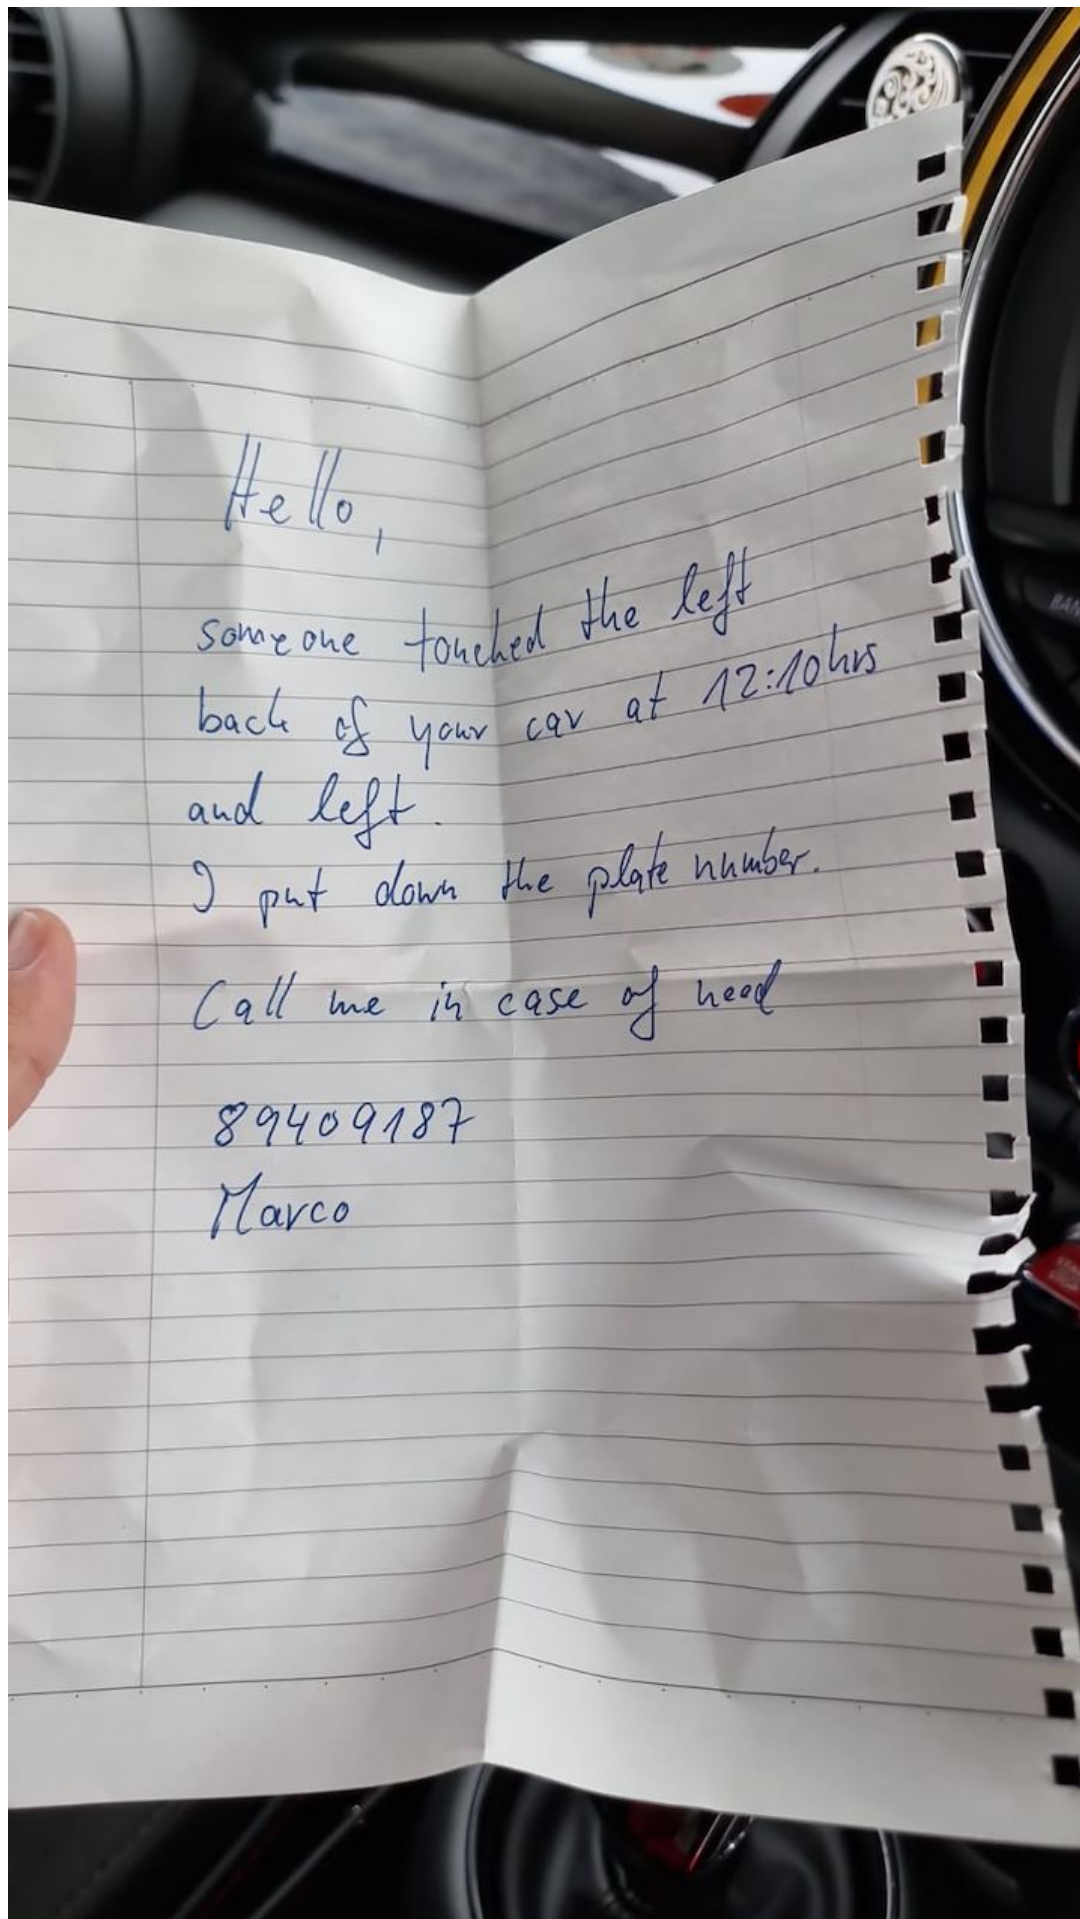 Hello,
someone touched the left
back of your car at 12:10hrs
and left.
I put down the plate number.
Call me in case of need
89409187
Marco